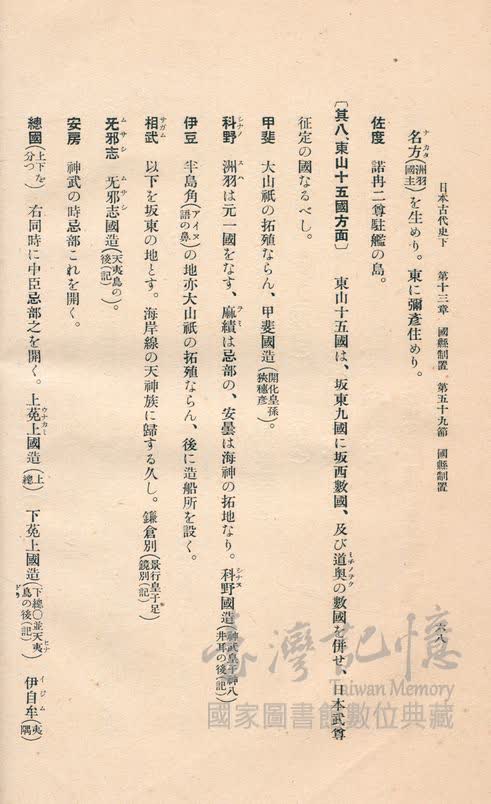 日本古代史下　第十三章　國縣制置　第五十九節　國縣制置　六八
名方(洲羽國主)を生めり。東に彌彥住めり。
佐度　諾冉二尊駐艦の島。
〔其八、東山十五國方面〕　東山十五國は、坂東九國に坂西數國、及び道奥の數國を併せ、日本武尊
征定の國なるべし。
甲斐　大山祇の拓殖ならん、甲斐國造(開化皇孫狹穗彥)。
科野　洲羽は元一國をなす、麻績は忌部の、安曇は海神の拓地なり。科野國造(神武皇子神八井耳の後(記))
伊豆　半島角(アイヌ語の鼻)の地亦大山祇の拓殖ならん、後に造船所を設く。
相武　以下を坂東の地とす。海岸線の天神族に歸する久し。鎌倉別(景行皇子足鏡別(記))
无邪志　无邪志國造(天夷鳥の後(記))。
安房　神武の時忌部これを開く。
總國(上下を分つ)　右同時に中臣忌部之を開く。上菟上國造(上總)　下菟上國造(下總〇並天夷鳥の後(記))　伊自牟(夷隅)
臺灣記憶
Taiwan Memory
國家圖書館數位典藏